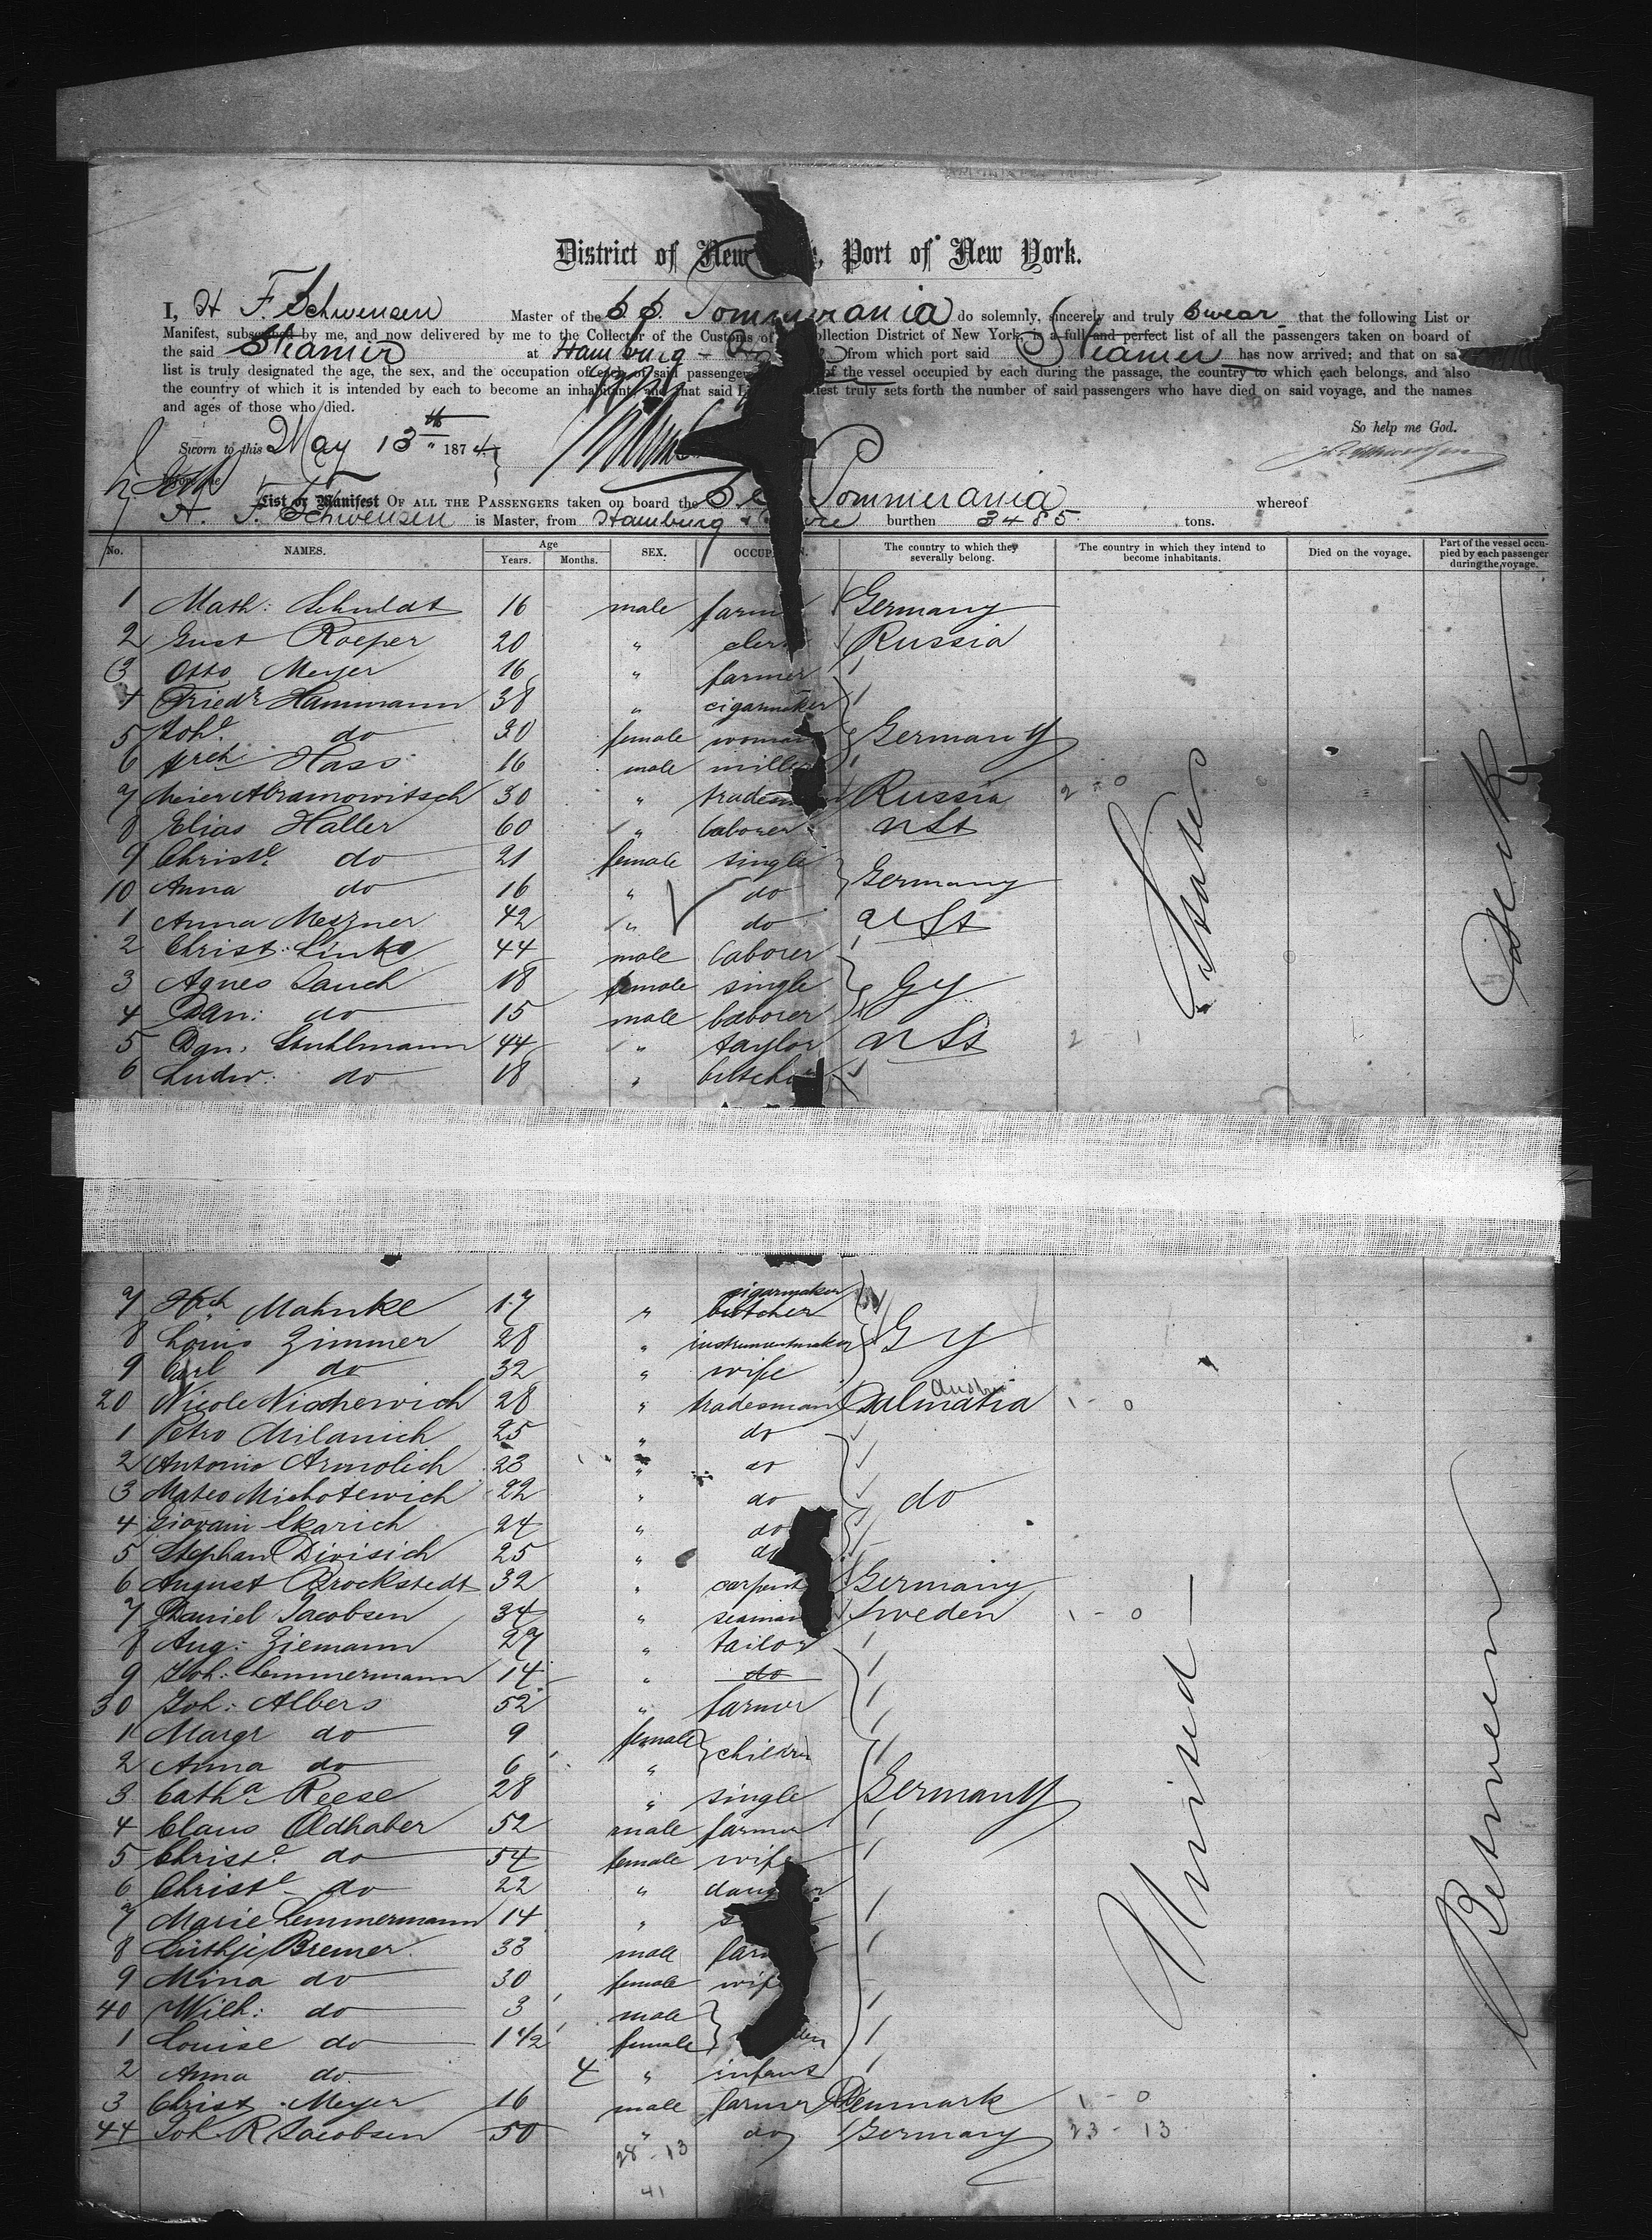 District of New Port of New York.
I, H F. Schwensen Master of the S. S. Pommerania do solemnly, sincerely and truly swear that the following List or
Manifest, subscribed by me, and now delivered by me to the Collector of the Customs of Collection District of New York, is a full and perfect list of all the passengers taken on board of
the said Steamer at Hamburg - from which port said Steamer has now arrived; and that on said
list is truly designated the age, the sex, and the occupation of each of said passengers of the vessel occupied by each during the passage, the country to which each belongs, and also
the country of which it is intended by each to become an inhabitant; and that said truly sets forth the number of said passengers who have died on said voyage, and the names
and ages of those who died.
So help me God.
Sworn to this May 13th 1874
List or Manifest OF ALL THE PASSENGERS taken on board the S. S. Pommerania whereof
H. F. Schwensen is Master, from Hamburg & burthen 3485 tons.
No. NAMES. Age Years. Months. SEX. The country to which they severally belong. The country in which they intend to become inhabitants. Died on the voyage. Part of the vessel occupied by each passenger during the voyage.
1 Math: Schuldt 16 male Germany
2 Gust Roeper 20 " Russia
3 Otto Meyer 16 " farmer
4 Friedr Hammann 38 " cigarmaker
5 Joh. do 30 female Germany
6 Hass 16 male
7 Meier Abramowitsch 30 " Russia 2 - 0
8 Elias Haller 60 " laborer U St
9 Christe do 21 female single
10 Anna do 16 " do Germany
1 Anna Meszner 42 " do U St
2 Christ: Link 44 male laborer
3 Agnes Lauch 18 female single Gy
4 Dan: do 15 male laborer
5 Dan. Stuhlmann 44 " taylor U St 2 - 1
6 Ludw: do 18 "
States
Deck
cigarmaker
7 Hch Mahnke 17 " butcher
8 Louis Zimmer 28 " instrumentmaker Gy
9 Carl do 32 " wife
20 Nicole 28 " tradesman Dalmatia Austria 1 - 0
1 Petro Milanich 25 " do
2 Antonio Armolich 23 " do
3 Mateo 22 " do do
4 Giovain Skarich 24 " do
5 Stephan Divisich 25 " do
6 August Brockstedt 32 " Germany
7 Daniel Jacobsen 34 " seaman Sweden 1 - 0
8 Aug: Ziemann 27 " tailor
9 Joh: Lemmermann 14 " do
30 Joh: Albers 52 " farmer
1 Margr do 9 female
2 Anna do 6 " children
3 Catha Reese 28 " single Germany
4 Claus Oldhaber 52 male farmer
5 Christe do 54 female wife
6 Christe do 22 "
7 Marie Lemmermann 14 "
8 Lüthje Bremer 33 male
9 Mina do 30 female wife
40 Wilh: do 3 male
1 Louise do 1 1/2 female
2 Anna do 4 " infant
3 Christ. Meyer 16 male farmer Denmark 1 - 0
44 Joh R Jacobsen 50 " do Germany 23 - 13
28 - 13
41
United
Between